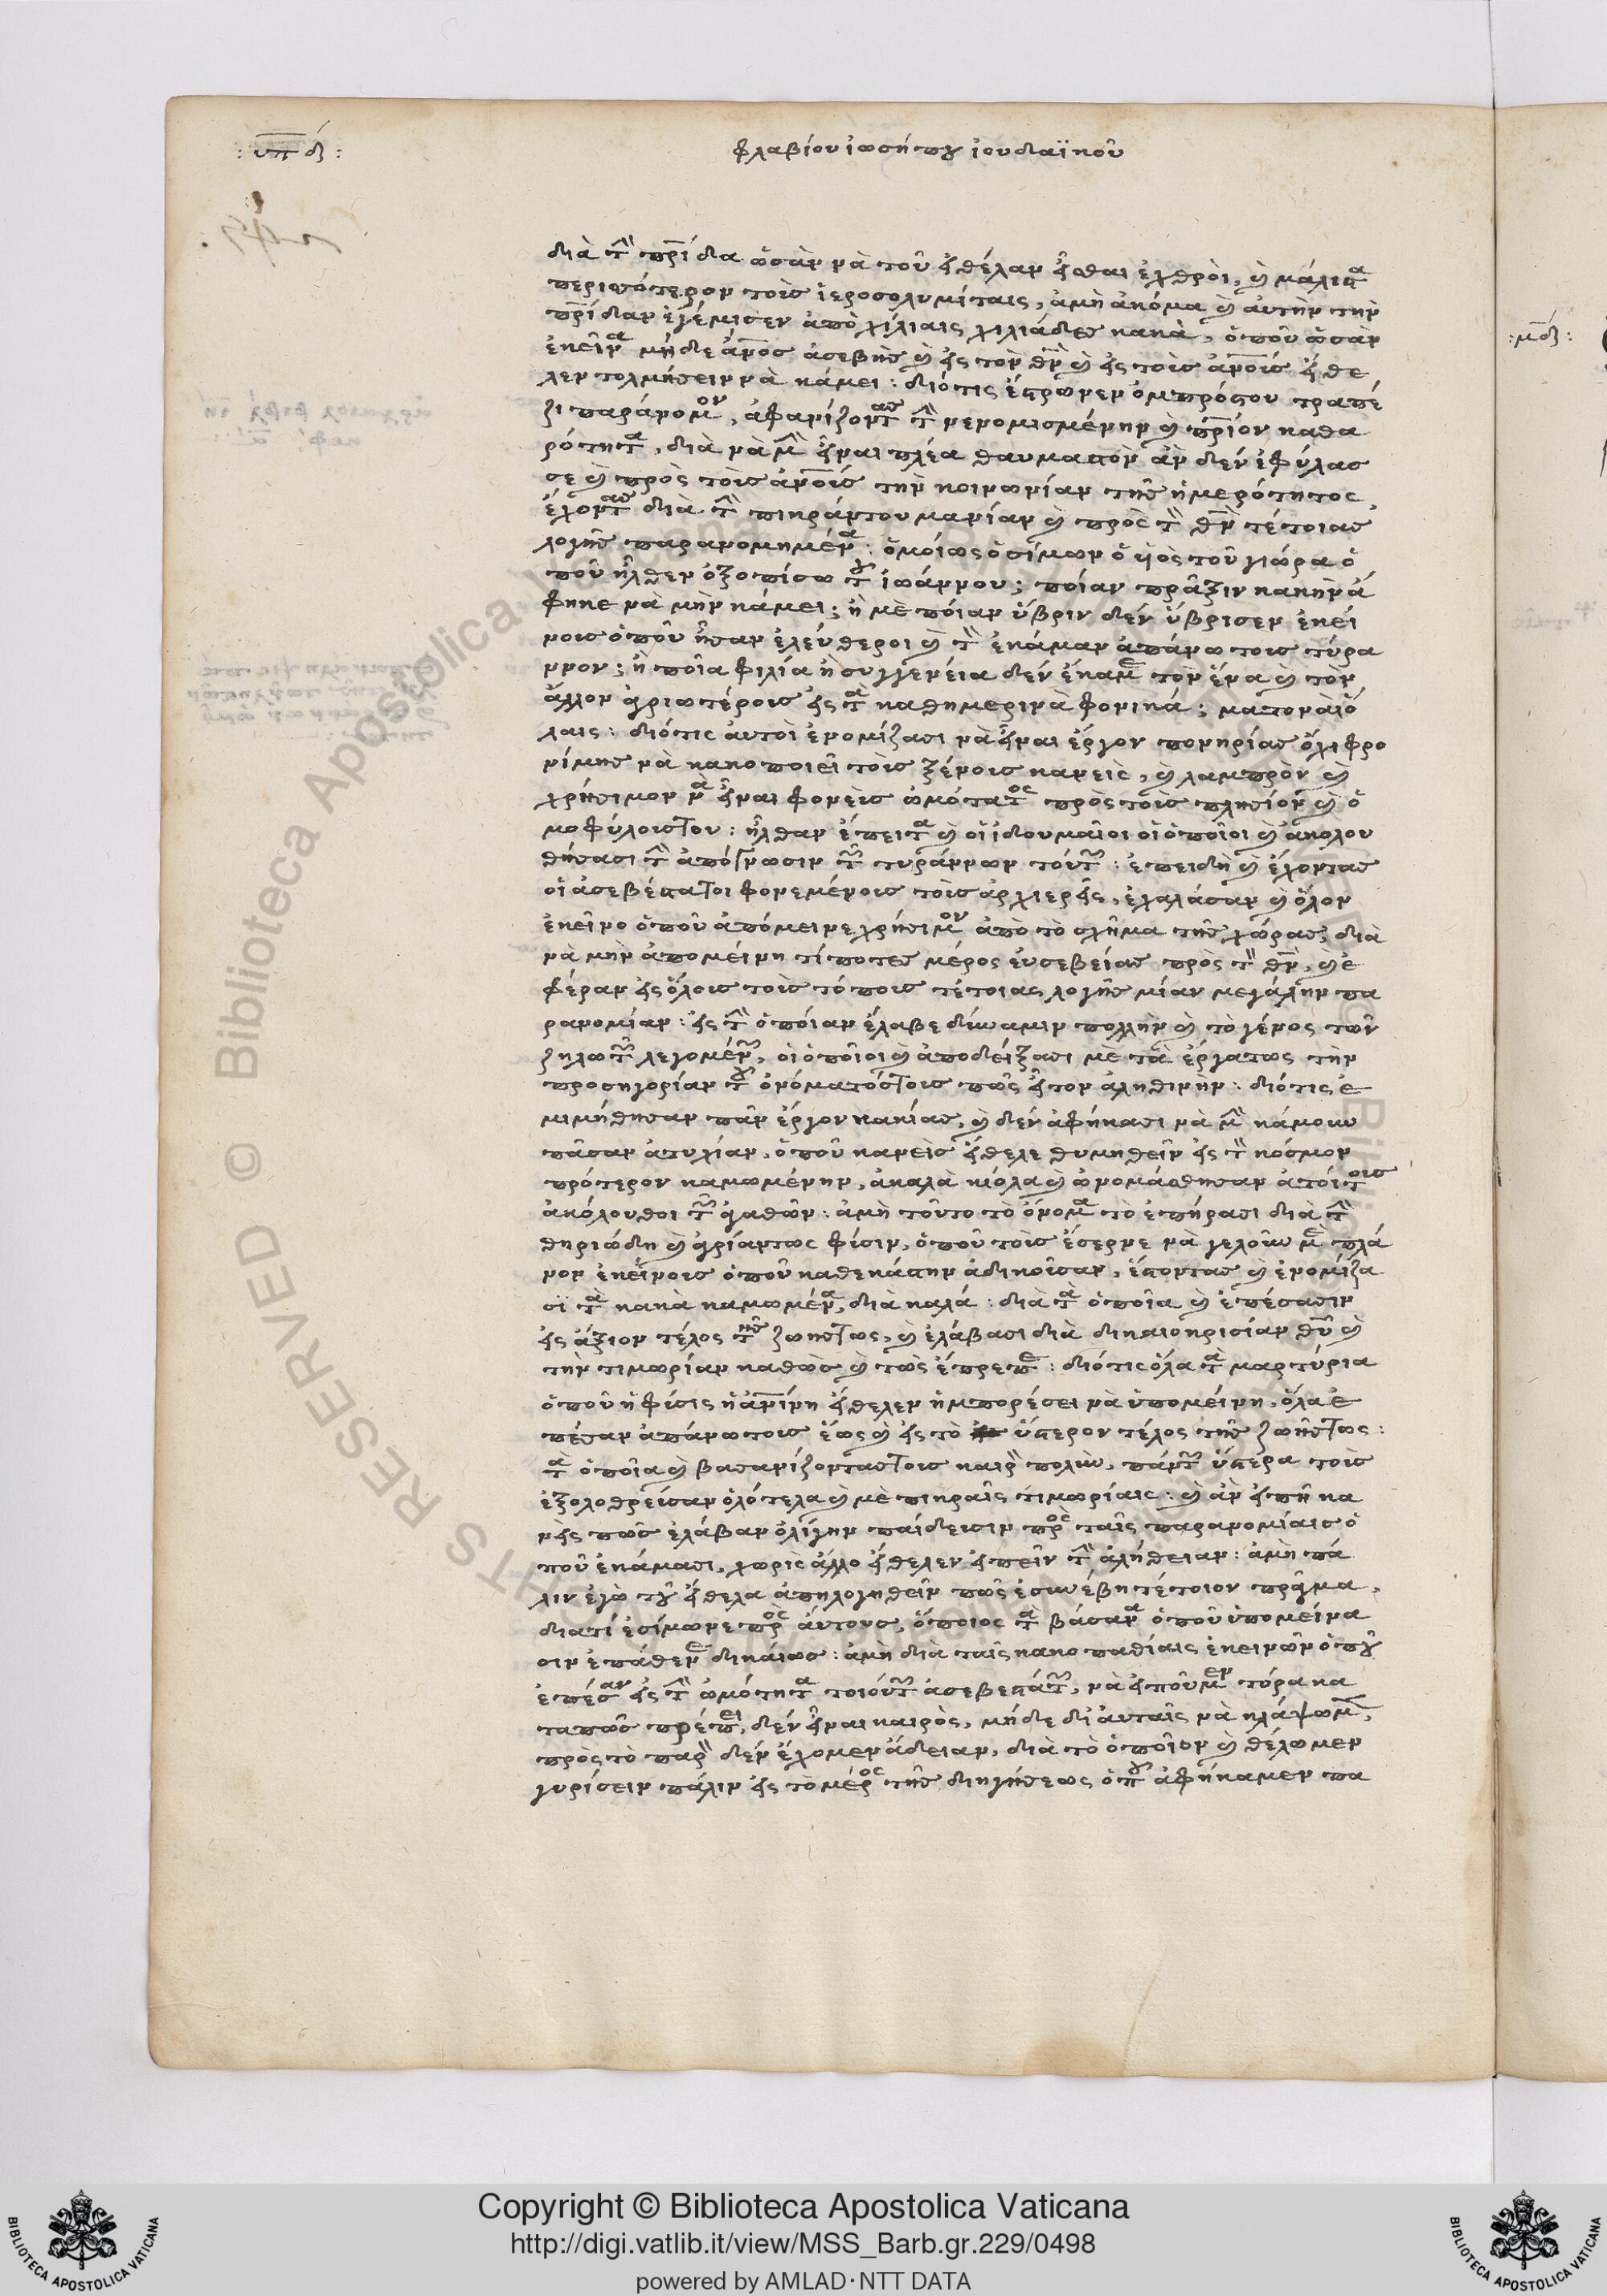 : υπδ :
φλαβίου ἰωσήπου ἰουδαϊκοῦ
διὰ τὴν πρίδα ὡσὰν νὰ τοῦ ἤθέλαν εἶσθαι ἐχθροὶ, καὶ μάλιστα
περισσότερον τοὺς ἱεροσολυμίταις, ἀμὴ ἀκόμα καὶ αὐτὴν τὴν
πρίδαν ἐγέμισεν ἀπὸ χίλιαις χιλιάδες κακὰ, ὁποῦ ὡσὰν
ἐκεῖνα μήδε ἄνος ἀσεβὴς καὶ εἰς τὸν θν καὶ εἰς τοὺς ἀνους ἤθε
λεν τολμήσειν νὰ κάμει : διότις ἔστρωνεν ὀμπρόστου τραπέ
ζι παράνομον, ἀφανίζοντας τὴν νενομισμένην καὶ πριον καθα
ρότητα, διὰ νὰ μὴν εἶναι πλέα θαυμαστὸν ἂν δὲν ἐφύλασ
σε καὶ πρὸς τοὺς ἀνους τὴν κοινωνίαν τῆς ἡμερότητος,
ἔχοντας διὰ τὴν πικράντου μανίαν καὶ πρὸς τὸν θν τέτοιας
λογῆς παρανομημένα : ὁμοίως ὁ σίμων ὁ ὑιὸς τοῦ γιώρα ὁ
ποῦ ἦλθεν ὀξοπίσω τοῦ ἰωάννου ; ποίαν πρᾶξιν κακὴν ἄ
φηκε νὰ μὴν κάμει ; ἢ μὲ ποίαν ὕβριν δὲν ὕβρισεν ἐκεί
νους ὁποῦ ἦσαν ἐλεύθεροι καὶ τὸν ἐκάμαν ἀπάνω τους τύρα
ννον ; ἢ ποῖα φιλία ἢ συγγενεία δὲν ἔκαμε τὸν ἕνα καὶ τὸν
ἄλλον ἀγριωτέρους εἰς τὰ καθημερινὰ φονικά ;
λαις : διότις αὐτοὶ ἐνομίζασι νὰ εἶναι ἔργον πονηρίας ὄχι φρο
νίμης νὰ κακοποιεῖ τοὺς ξένους κανεὶς, καὶ λαμπρὸν καὶ
χρήσιμον νὰ εἶναι φονεὺς ὠμότατος πρὸς τοὺς πλησίον καὶ ὁ
μοφύλους του : ἦλθαν ἔπειτα καὶ οἱ ἰδουμαῖοι οἱ ὁποῖοι καὶ ἀκολου
θήσασι τὴν ἀπόγνωσιν τῶν τυράννων τούτων : ἐπειδὴ καὶ ἔχοντας
οἱ ἀσεβέστατοι φονεμένους τοὺς ἀρχιερεῖς, ἐχαλάσαν καὶ ὅλον
ἐκεῖνο ὁποῦ ἀπόμεινε χρήσιμον ἀπὸ τὸ σχῆμα τῆς χώρας, διὰ
νὰ μὴν ἀπομείνη τίποτες μέρος εὐσεβείας πρὸς τὸν θν, καὶ ἐ
φέραν εἰς ὅλους τοὺς τόπους τέτοιας λογῆς μίαν μεγάλην πα
ρανομίαν : εἰς τὴν ὁποίαν ἔλαβε δύναμιν πολλὴν καὶ τὸ γένος τῶν
ζηλωτῶν λεγομένων, οἱ ὁποῖοι καὶ ἀποδείξασι μὲ τὰ ἔργατως τὴν
προσηγορίαν τοῦ ὀνόματός τους πῶς ἦτον ἀληθινὴν : διότις ἐ
μιμήθησαν πᾶν ἔργον κακίας, καὶ δὲν ἀφήκασι νὰ μὴν κάμουν
πᾶσαν ἀτυχίαν, ὁποῦ κανεὶς ἤθελε θυμηθεῖν εἰς τὸν κόσμον
πρότερον καμωμένην, ἀκαλὰ κιόλα καὶ ὠνομάσθησαν ἀτοίτους
ἀκόλουθοι τῶν ἀγαθῶν : ἀμὴ τοῦτο τὸ ὄνομα τὸ ἐπήρασι διὰ τὴν
θηριώδη καὶ ἀγρίαντως φύσιν, ὁποῦ τοὺς ἔσερνε νὰ γελοῦν μὲ πλά
νον ἐκείνους ὁποῦ καθεκάστην ἀδικοῦσαν, ἔστοντας καὶ ἐνομίζα
σϊ τὰ κακὰ καμωμένα, διὰ καλά : διὰ τὰ ὁποῖα καὶ ἐπέσασιν
εἰς ἄξιον τέλος τῆς ζωῆς τως, καὶ ἐλάβασι διὰ δικαιοκρισίαν θυ καὶ
τὴν τιμωρίαν καθὼς καὶ τῶς ἔπρεπε : διότις ὅλα τὰ μαρτύρια
ὁποῦ ἡ φύσις ἡ ἀνινη ἤθελεν ἠμπορέσει νὰ ὑπομείνη, ὅλα ἐ
πέσαν ἀπάνωτους ἕως καὶ εἰς τὸ ὕστερον τέλος τῆς ζωῆς τως :
τὰ ὁποῖα καὶ βασανίζοντας τους καιρὸν πολὺν, πάντων ὕστερα τοὺς
ἐξολοθρεῦσαν ὁλότελα καὶ μὲ πικραῖς τιμωρίαις : καὶ ἂν εἰπῆ κα
νεὶς πῶς ἐλάβαν ὀλίγην παίδευσιν πρὸς ταῖς παρανομίαις ὁ
ποῦ ἐκάμασι, χωρὶς ἄλλο ἤθελεν εἰπεῖν τὴν ἀλήθειαν : ἀμὴ πά
λιν ἐγὼ τοῦ ἤθελα ἀπηλογηθεῖν πῶς ἐσυνέβη τέτοιον πρᾶγμα,
διατί ἐσίμωνε πρὸς αὐτους, ὅποιος τὰ βάσανα ὁποῦ ὑπομείνα
σιν ἐπάθενε δικαίως : ἀμὴ διὰ ταῖς κακοπαθίαις ἐκεινῶν ὁποῦ
ἐπέσαν εἰς τὴν ὠμότητα τοιούτων ἀσεβεστάτων, νὰ εἰποῦμεν τόρα κα
ταπῶς πρέπει, δὲν εἶναι καιρὸς, μήδε δι' αὐταῖς νὰ κλάψωμεν,
πρὸς τὸ παρὸν δὲν ἔχομεν ἄδειαν, διὰ τὸ ὁποῖον καὶ θέλωμεν
γυρίσειν πάλιν εἰς τὸ μέρος τῆς διηγήσεως ὁποῦ ἀφήκαμεν πα
:μδ:
Copyright © Biblioteca Apostolica Vaticana
http://digi.vatlib.it/view/MSS_Barb.gr.229/0498
powered by AMLAD·NTT DATA